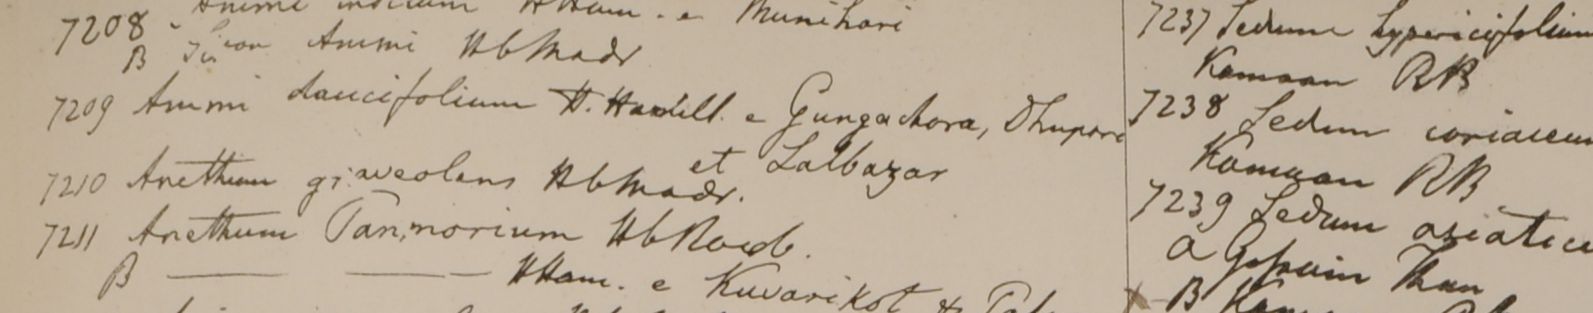 7208 Ammi indicum HHam. e Munihari
B Ammi HbMadr
7209 Ammi daucifolium H. Hamill. e Gungachora, Dhupore
et Lalbazar
7210 Anethum graveolens HbMadr.
7211 Anethum Panmorium HbRoxb.
B HHam. e Kuvarikot &
7237 Sedum hypericifolium
Kamaon RB
7238 Sedum coriaceum
Kamaon RB
7239 Sedum asiaticu
a Gossain Than
B Kam